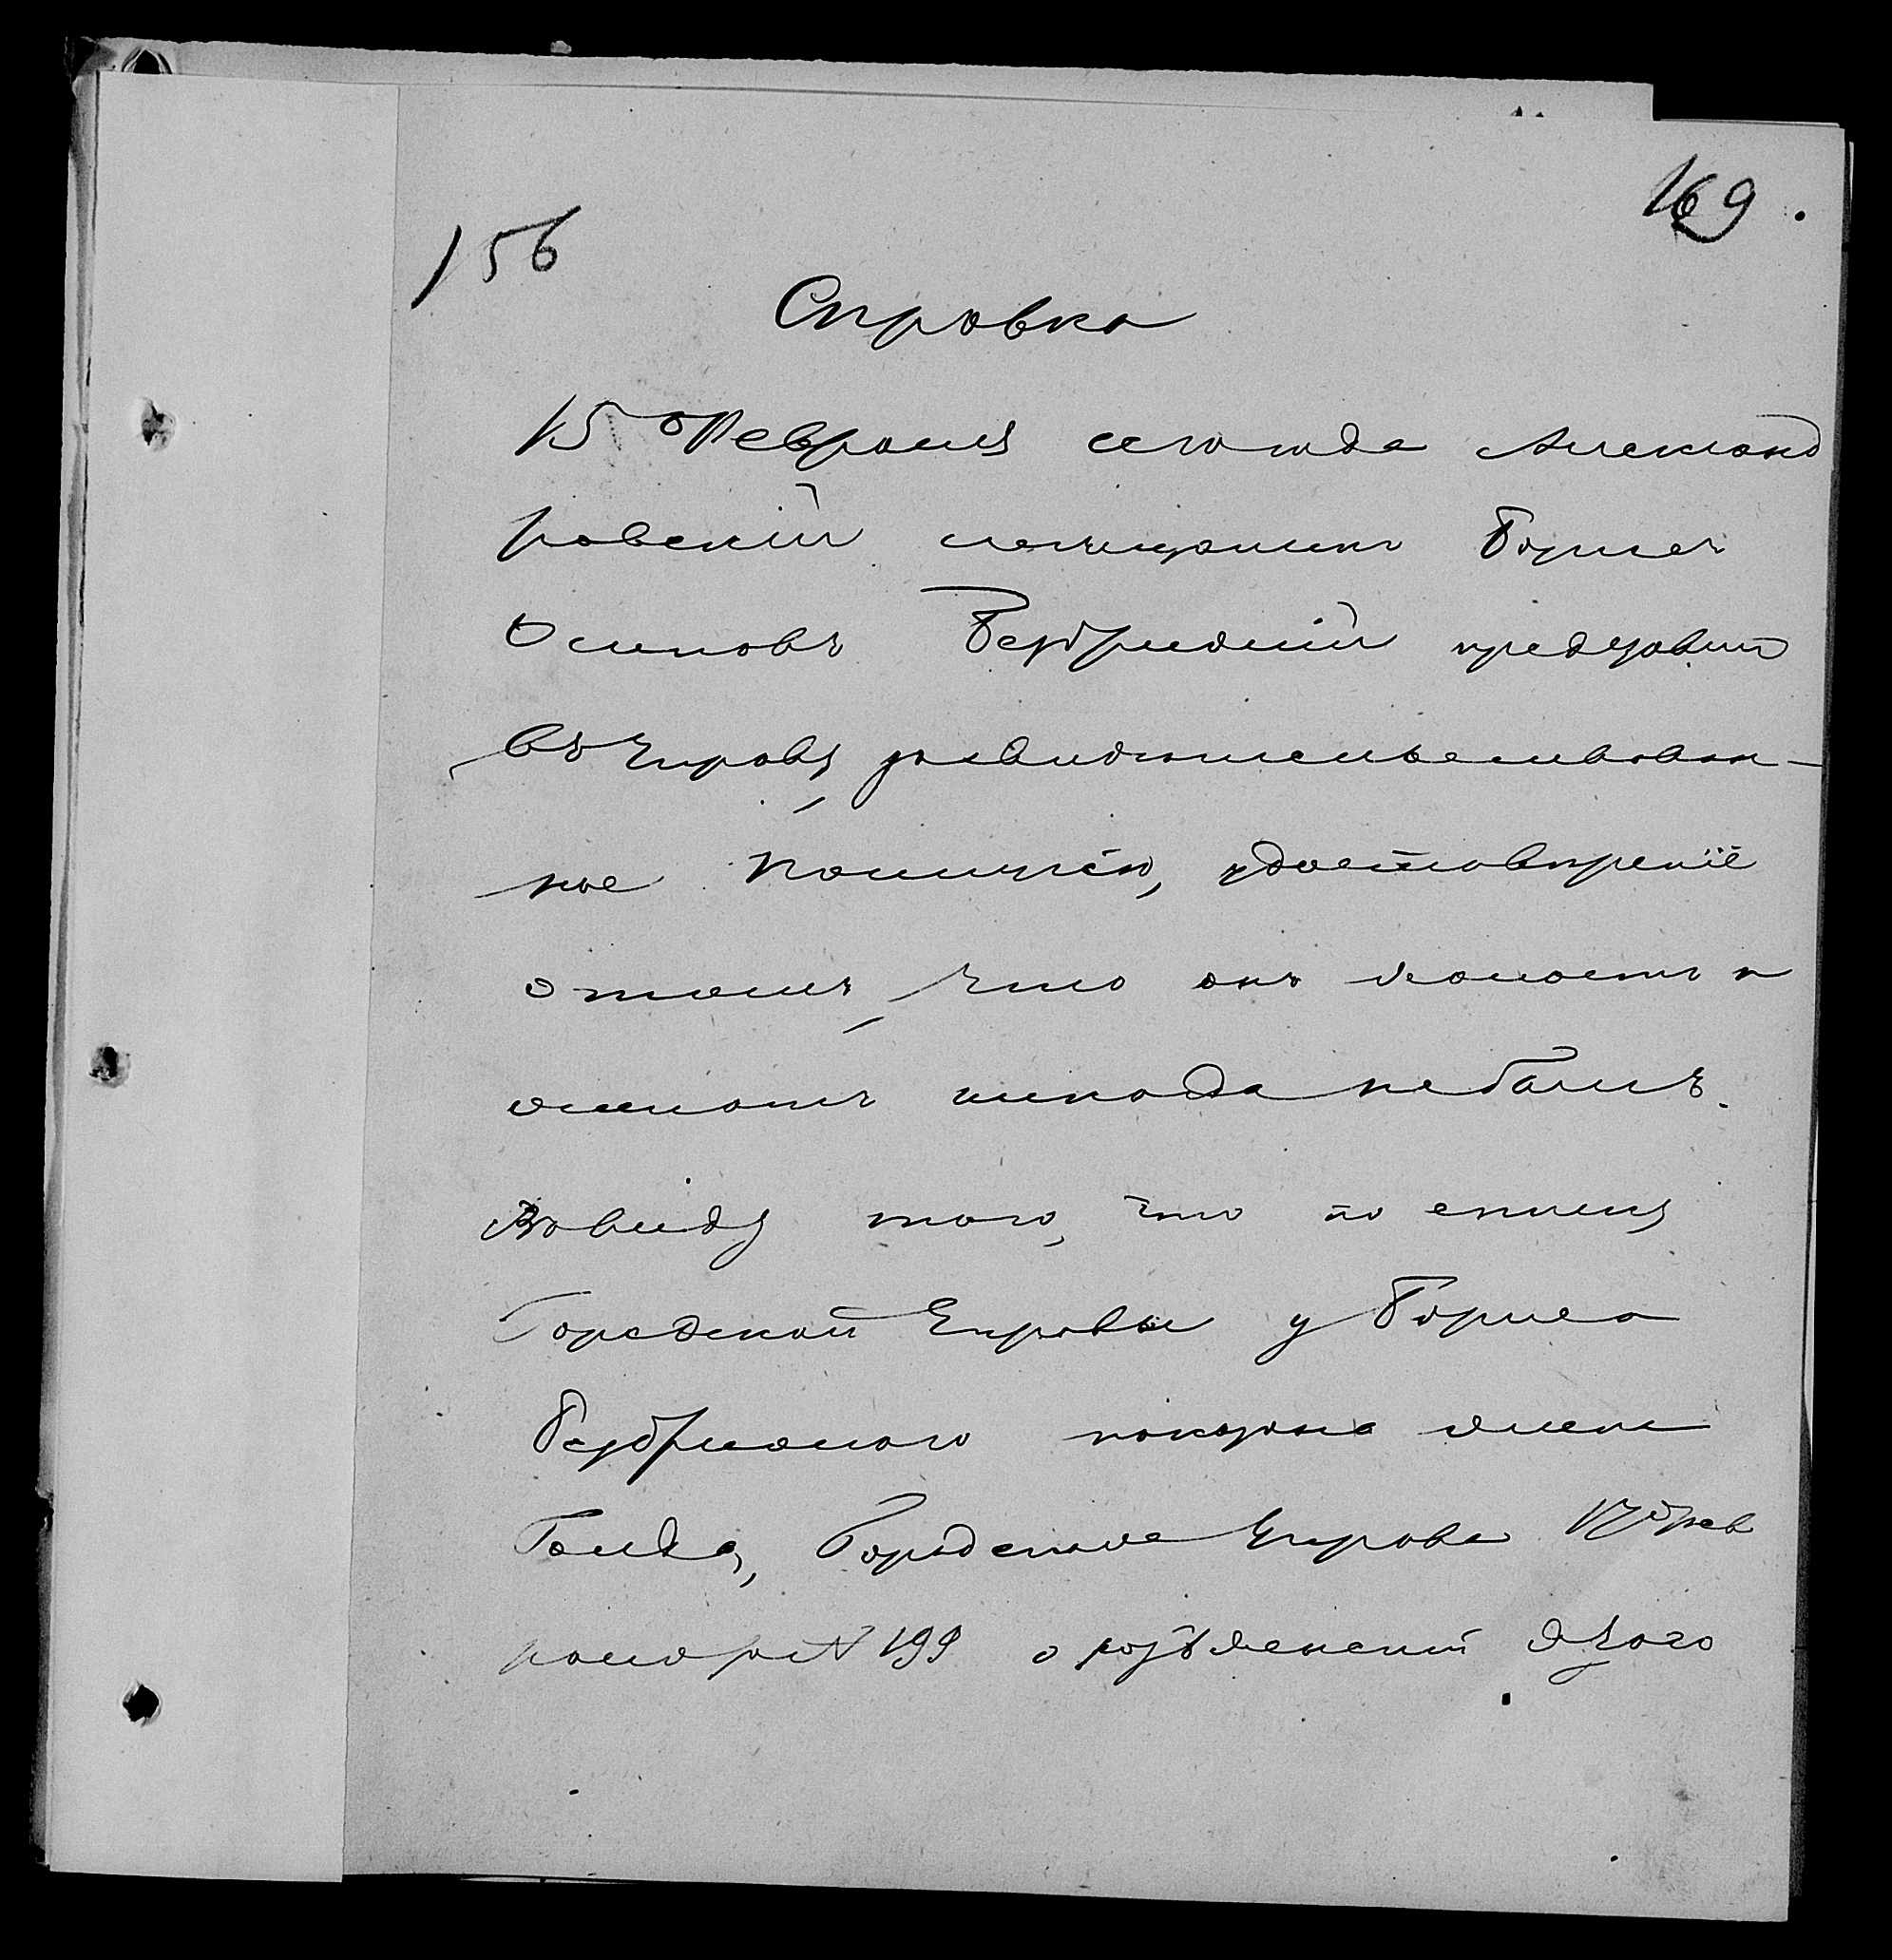 169.
156
Справка
15 Февраля сего года Александ
ровскій мещанинъ Борисъ
Осиповъ представилъ
въ Управу засвидѣтельствован-
ное Полиціею, удостовѣреніе
о томъ, что онъ холостъ и
женатъ никогда не былъ.
Ввиду того, что по списку
Городской Управы у Бориса
показана жена
Городская Управа 17 Фев
раля за № 199 о разъясненіи этого